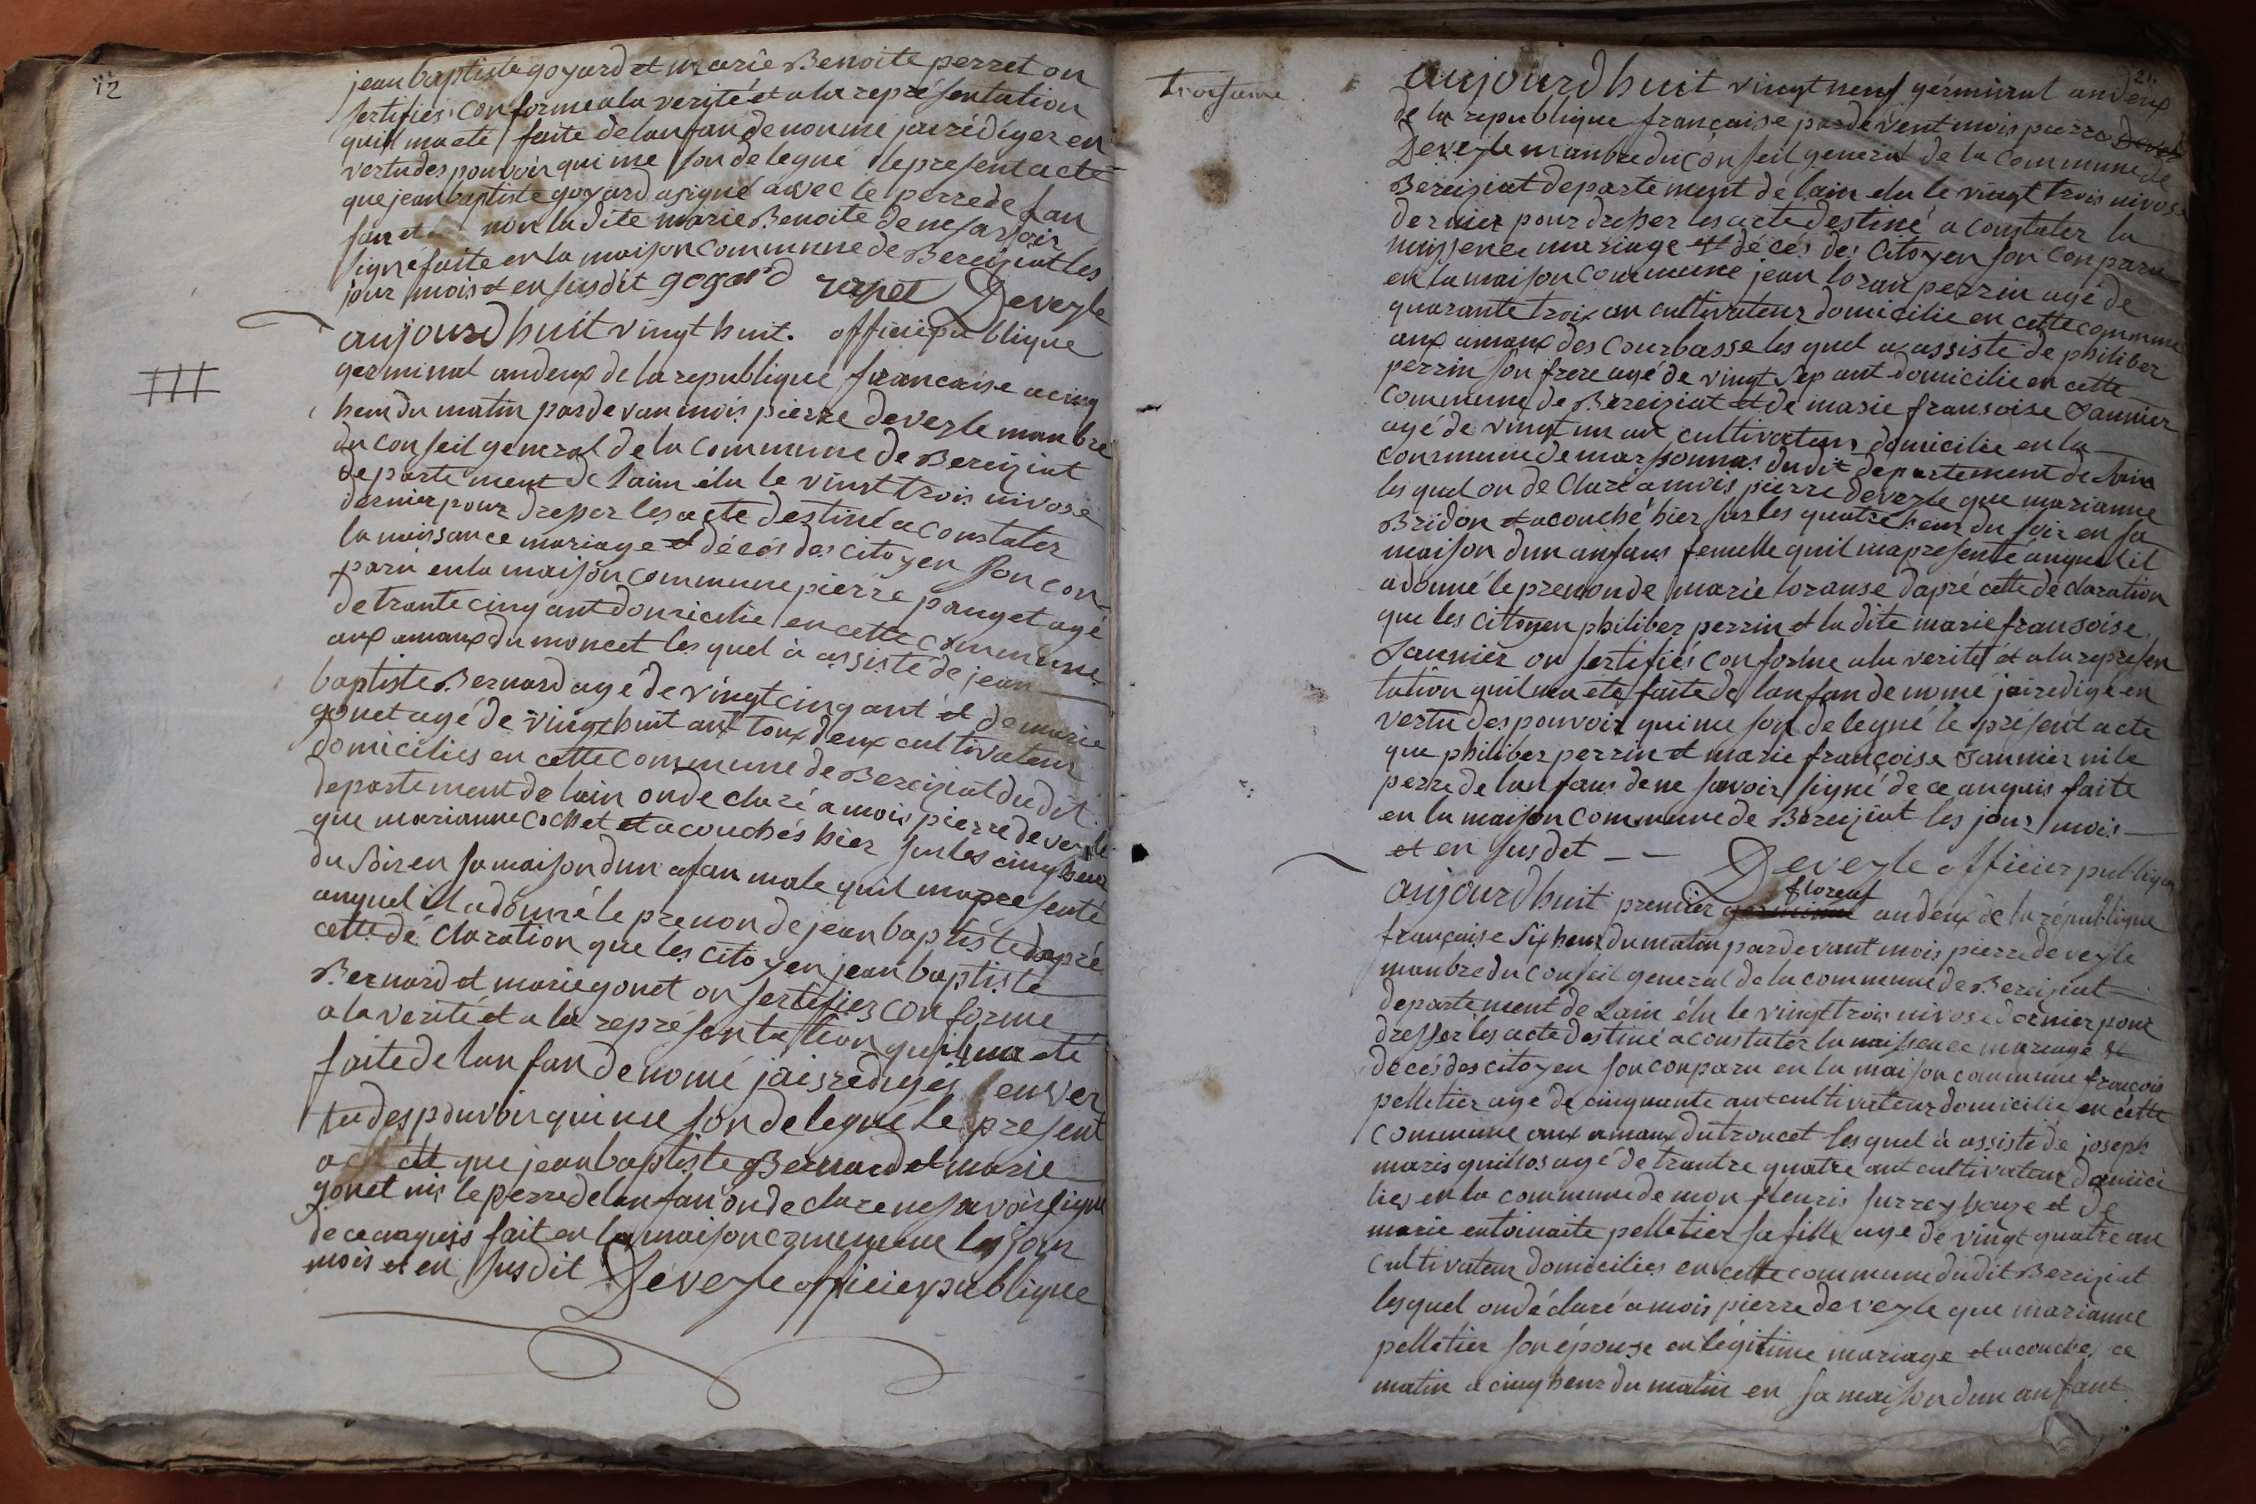 12
jean baptiste goyard et marie Benoite perret on
sertifiés conforme a la verité et a la représentation
quil ma eté faite de lanfan de nonmé jai rédiger en
vertu des pouvoir qui me son delegué le present acte
que jean baptiste goyard a signé avec le perre de lan
fan et non la dite marie Benoite de ne savoir
signé faite en la maison commune de Bereiziat les
jour mois et en susdit gogard rapet Deveyle
aujourdhuit vingt huit. officié publique
germinal an deux de la republique francaise a cinq
heur du matin par de van mois pierre deveyle manbre
du conseil general de la commune de Bereiziat
departement de lain élu le vingt trois nivose
dernier pour dresser les acte destiné a constater
la naissance mariage et décés des citoyen son con
paru en la maison commune pierre pauget agé
de trante cinq ant domicilie en cette commune
aux amaux du moncet les quel à assisté de jean
baptiste Bernard agé de vingt cinq ant et de marie
gonet agé de vingt huit ant toux deux cultivateur
domicilies en cette commune de Bereiziat dudit
departement de lain on declaré a mois pierre deveyle
que marianne cochet et acouchés hier sur les cinq heur
du soir en sa maison dun afan male quil ma presenté
auquel il a donné le prenon de jean baptiste dapré
cette dé claration que les citoyen jean baptiste
Bernard et marie gonet on sertifier conforme
a la verité et a la représentation quil ma eté
faite de lanfan de nomé jais rediger en ver
tu des pouvoir qui me son delegué le present
acte que jean baptiste Bernard et marie
gonet nis le perre de lanfan on declare ne savoir signe
de ce anquis fait en la maison commune les jour
mois et en susdit Deveyle officier publique
21.
troisieme
aujourdhuit vingt neuf gérminal an deux
de la republique française par de vent mois pierre Devey
Deveyle manbre du conseil general de la commune de
Bereiziat departement de lain elu le vingt trois nivose
dernier pour dresser les acte destiné a constater la
naissence mariage et décés des citoyen son conparu
en la maison commune jean loran perrin agé de
quarante troix an cultivateur domicilie en cette commune
aux amaux des courbasse les quel a assisté de philiber
perrin son frere agé de vingt sep ant domicilie en cette
commune de Bereiziat et de marie fransoise Jannier
agé de vingt un an cultivateur domicilie en la
commune de marsonnas dudit departement de lain
les quel on de claré a mois pierre deveyle que marianne
Bridon et acouché hier sur les quatre heur du soir en sa
maison dun anfans femelle quil ma presenté auquel il
a donné le prenon de marie loranse dapré cette de claration
que les citoyen philiber perrin et la dite marie fransoise
Jaunier on sertifiés conforme a la verité et a la represen
tation quil ma eté faite de lanfan de nomé jai redigé en
vertu des pouvoir qui me son delegué le présent acte
que philiber perrin et marie françoise Jannier ni le
perre de lanfans de ne savoir signé de ce anquis faite
en la maison commune de Bereiziat les jour mois
et en susdet Deveyle officier publique
floreal
aujourdhuit premier germinal an deux de la république
française six heur du matin par devant mois pierre deveyle
manbre du conseil general de la commune de Bereiziat
departement de Lain élu le vingt trois nivose dernier pour
dresser les acte destiné a constater la naissence mariage et
décés des citoyen son conparu en la maison commune françois
pelletier agé de cinquante ant cultivateur domicilié en cette
commune aux amaux du troncet les quel à assisté de joseph
maris guillos agé de trantre quatre ant cultivateur domici
lies en la commune de mon fleuris sur reyssouze et de
marie entoinaite pelletier sa fille agé de vingt quatre an
cultivateur domicilies en cette commune dudit Bereiziat
les quel on déclaré a mois pierre deveyle que marianne
pelletier son épouse en légitime mariage et acouché ce
matin a cinq heur du matin en sa maison dun anfant